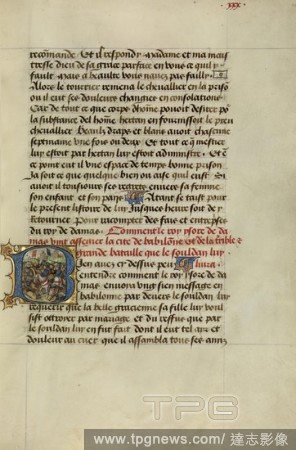 xxx.
recomande Et il respondy Madame et ma mais
tresse dieu de sa grace parface en vous ce quil y
fault Mais a beaulte vous navez pas failly
Alors le tourier remena le chevallier en la prison
ou il eut ses douleurs changies en consolations
Car de tout ce que corps dhome pouoit desirer po
la substance del home hertan en fournissoit le preu
chevallier Beaulx draps et blans avoit chascune
sepmaine une fois ou deux Et tout ce q mestier
luy estoit par hertan luy estoit admistre Et en
ce point eut il une espace de temps bonne prison
Ja soit ce que quelque bien ou aise quil eust Si
avoit il tousiours ses regretz envers sa feme
son enfant et son pays Atant se taist pour
le present listoire de luy Jusques heure soit de y
Retourner Pour racompter des fais et entreprises
du roy de damas Comment le roy ysore de da
mas vint assegier la cite de babilone et de la
grande bataille que le souldan luy
livra
Bien avez cy dessus peu
entendre comment le roy ysore de da
mas envoia ungt sien message en
babilonne par devers le souldan luy
requerir que la belle gracienne sa fille luy voul
sist ottroier par mariage et du reffus que par
le souldan en fut fait dont il eut tel ayr et
douleur au cuer que il assambla tous ses amis
TPG
www.tpgnews.com / 達志影像